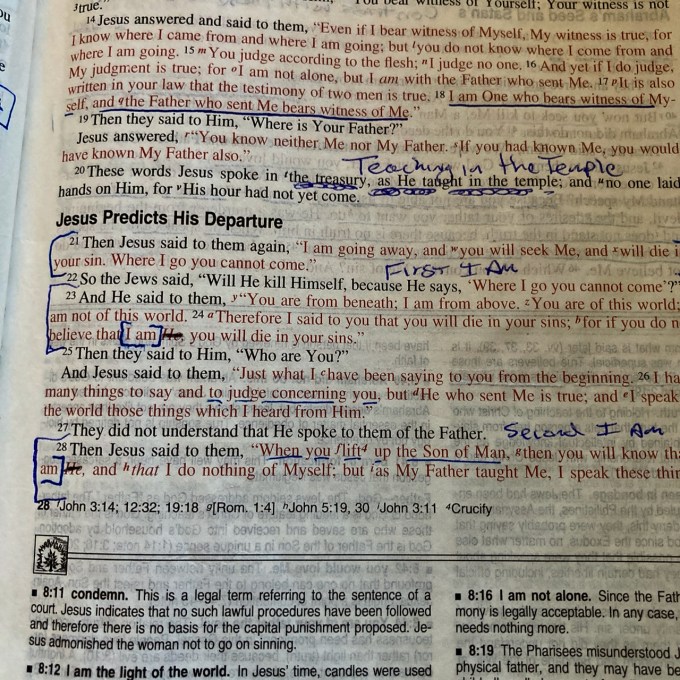 3true.
14 Jesus answered and said to them, "Even if I bear witness of Myself, My witness is true, for
I know where I came from and where I am going; but lyou do not know where I come from and
where I am going. 15 mYou judge according to the flesh; nI judge no one. 16 And yet if I do judge,
My judgment is true; for oI am not alone, but I am with the Father who sent Me. 17 pIt is also
written in your law that the testimony of two men is true. 18 I am One who bears witness of My-
self, and qthe Father who sent Me bears witness of Me."
19 Then they said to Him, "Where is Your Father?"
Jesus answered, r"You know neither Me nor My Father. sIf you had known Me, you would
have known My Father also."
Teaching in the Temple
20 These words Jesus spoke in tthe treasury, as He taught in the temple; and uno one laid
hands on Him, for vHis hour had not yet come.
Jesus Predicts His Departure
21 Then Jesus said to them again, "I am going away, and wyou will seek Me, and xwill die i
your sin. Where I go you cannot come."
First I Am
22 So the Jews said, "Will He kill Himself, because He says, 'Where I go you cannot come'?"
23 And He said to them, y"You are from beneath; I am from above. zYou are of this world;
am not of this world. 24 aTherefore I said to you that you will die in your sins; bfor if you do n
believe that I am He, you will die in your sins."
25 Then they said to Him, "Who are You?"
And Jesus said to them, "Just what I chave been saying to you from the beginning. 26 I ha
many things to say and to judge concerning you, but dHe who sent Me is true; and eI speak
the world those things which I heard from Him."
27 They did not understand that He spoke to them of the Father.
Second I Am
28 Then Jesus said to them, "When you flift4 up the Son of Man, gthen you will know th
am He, and hthat I do nothing of Myself; but ias My Father taught Me, I speak these thin
28 fJohn 3:14; 12:32; 19:18 g[Rom. 1:4] hJohn 5:19, 30 iJohn 3:11 4Crucify
8:11 condemn. This is a legal term referring to the sentence of a
court. Jesus indicates that no such lawful procedures have been followed
and therefore there is no basis for the capital punishment proposed. Je-
sus admonished the woman not to go on sinning.
8:12 I am the light of the world. In Jesus' time, candles were used
8:16 I am not alone. Since the Fath
mony is legally acceptable. In any case,
needs nothing more.
8:19 The Pharisees misunderstood J
physical father, and they may have be